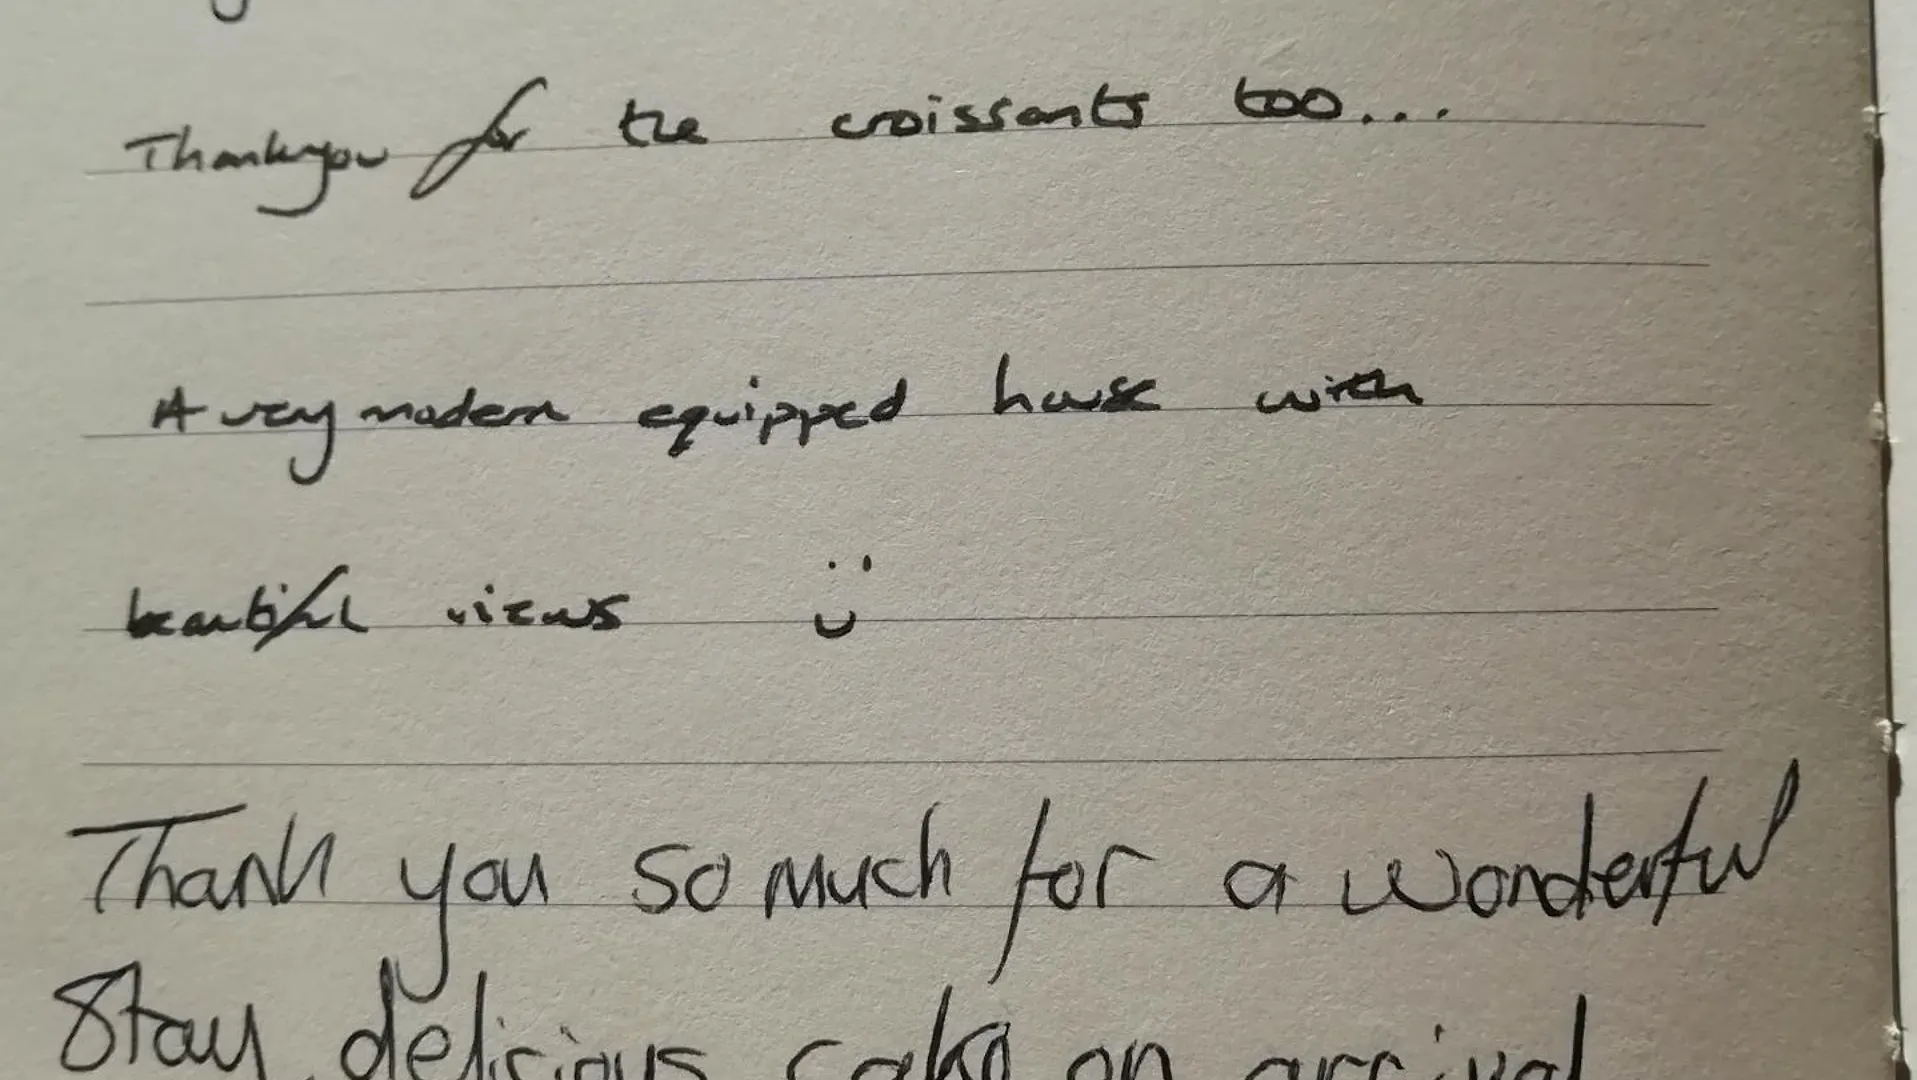 Thankyou for the croissants too...
A very modern equipped house with
beautiful views :)
Thank you so much for a wonderful
Stay, delicious cake on arrival